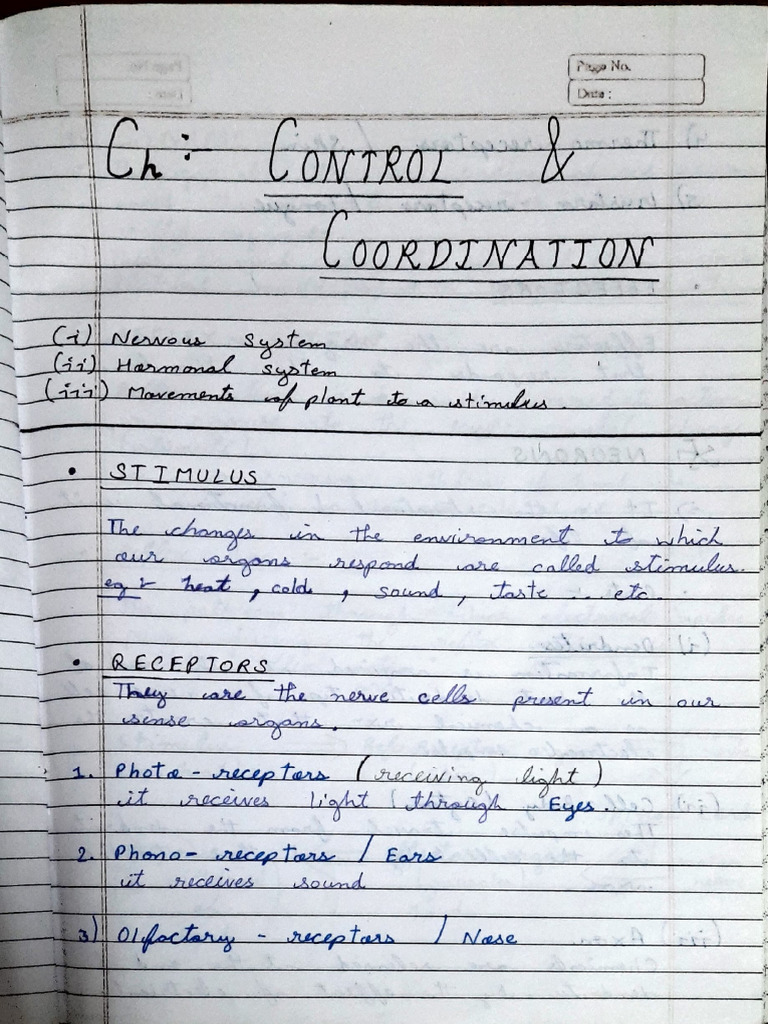 Page No.
Date :
Ch :- CONTROL &
COORDINATION
(i) Nervous system
(ii) Harmonal system
(iii) Movements of plant to a stimulus.
• STIMULUS
The changes in the environment to which
our organs respond are called stimulus.
eg:- heat, cold, sound, taste .. etc.
• RECEPTORS
They are the nerve cells present in our
sense organs.
1. Photo-receptors (receiving light)
it receives light / through Eyes.
2. Phono-receptors / Ears
it receives sound
3) Olfactory - receptors / Nose